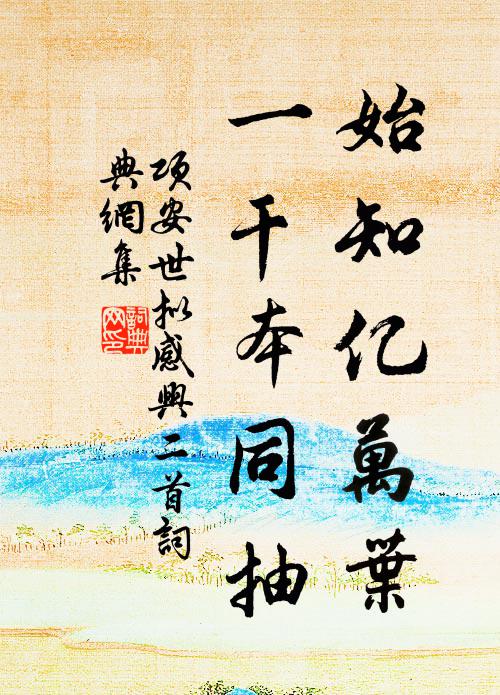 始知亿萬葉
一干本同抽
项安世拟感興二首詞
典網集
詞典
网印